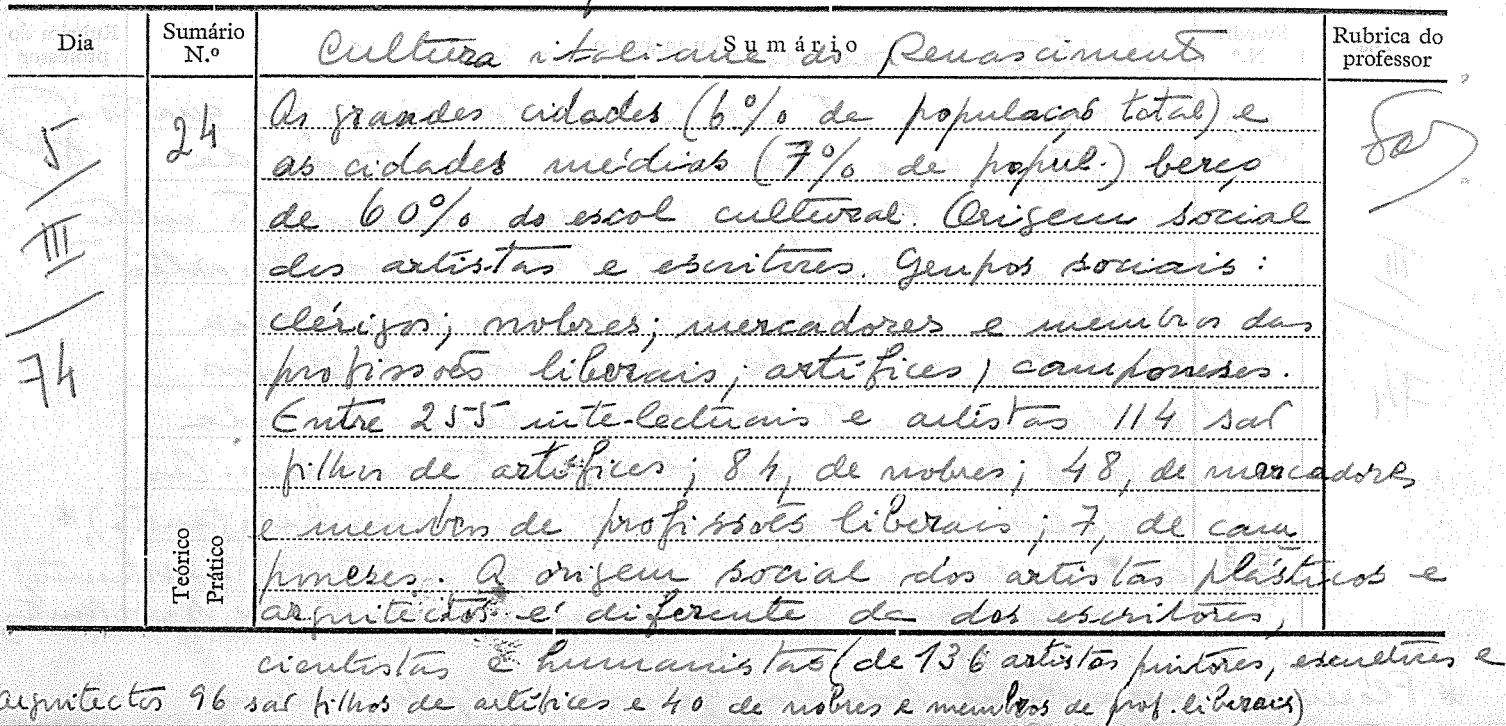 Dia
Sumário N.º
Sumário
Rubrica do professor
Cultura italiana do Renascimento
5/III/74
24
As grandes cidades (6% da população total) e
as cidades médias (7% da popul.) berço
de 60% do escol cultural. Origem social
dos artistas e escritores. Grupos sociais:
clérigos; nobres; mercadores e membros das
profissões liberais; artífices; camponeses.
Entre 255 intelectuais e artistas 114 são
filhos de artífices; 84, de nobres; 48, de mercadores
e membros de profissões liberais; 7, de cam
poneses. A origem social dos artistas plásticos e
arquitectos é diferente da dos escritores,
Teórico
Prático
cientistas e humanistas (de 136 artistas pintores, escultores e
arquitectos 96 são filhos de artífices e 40 de nobres e membros de prof. liberais)